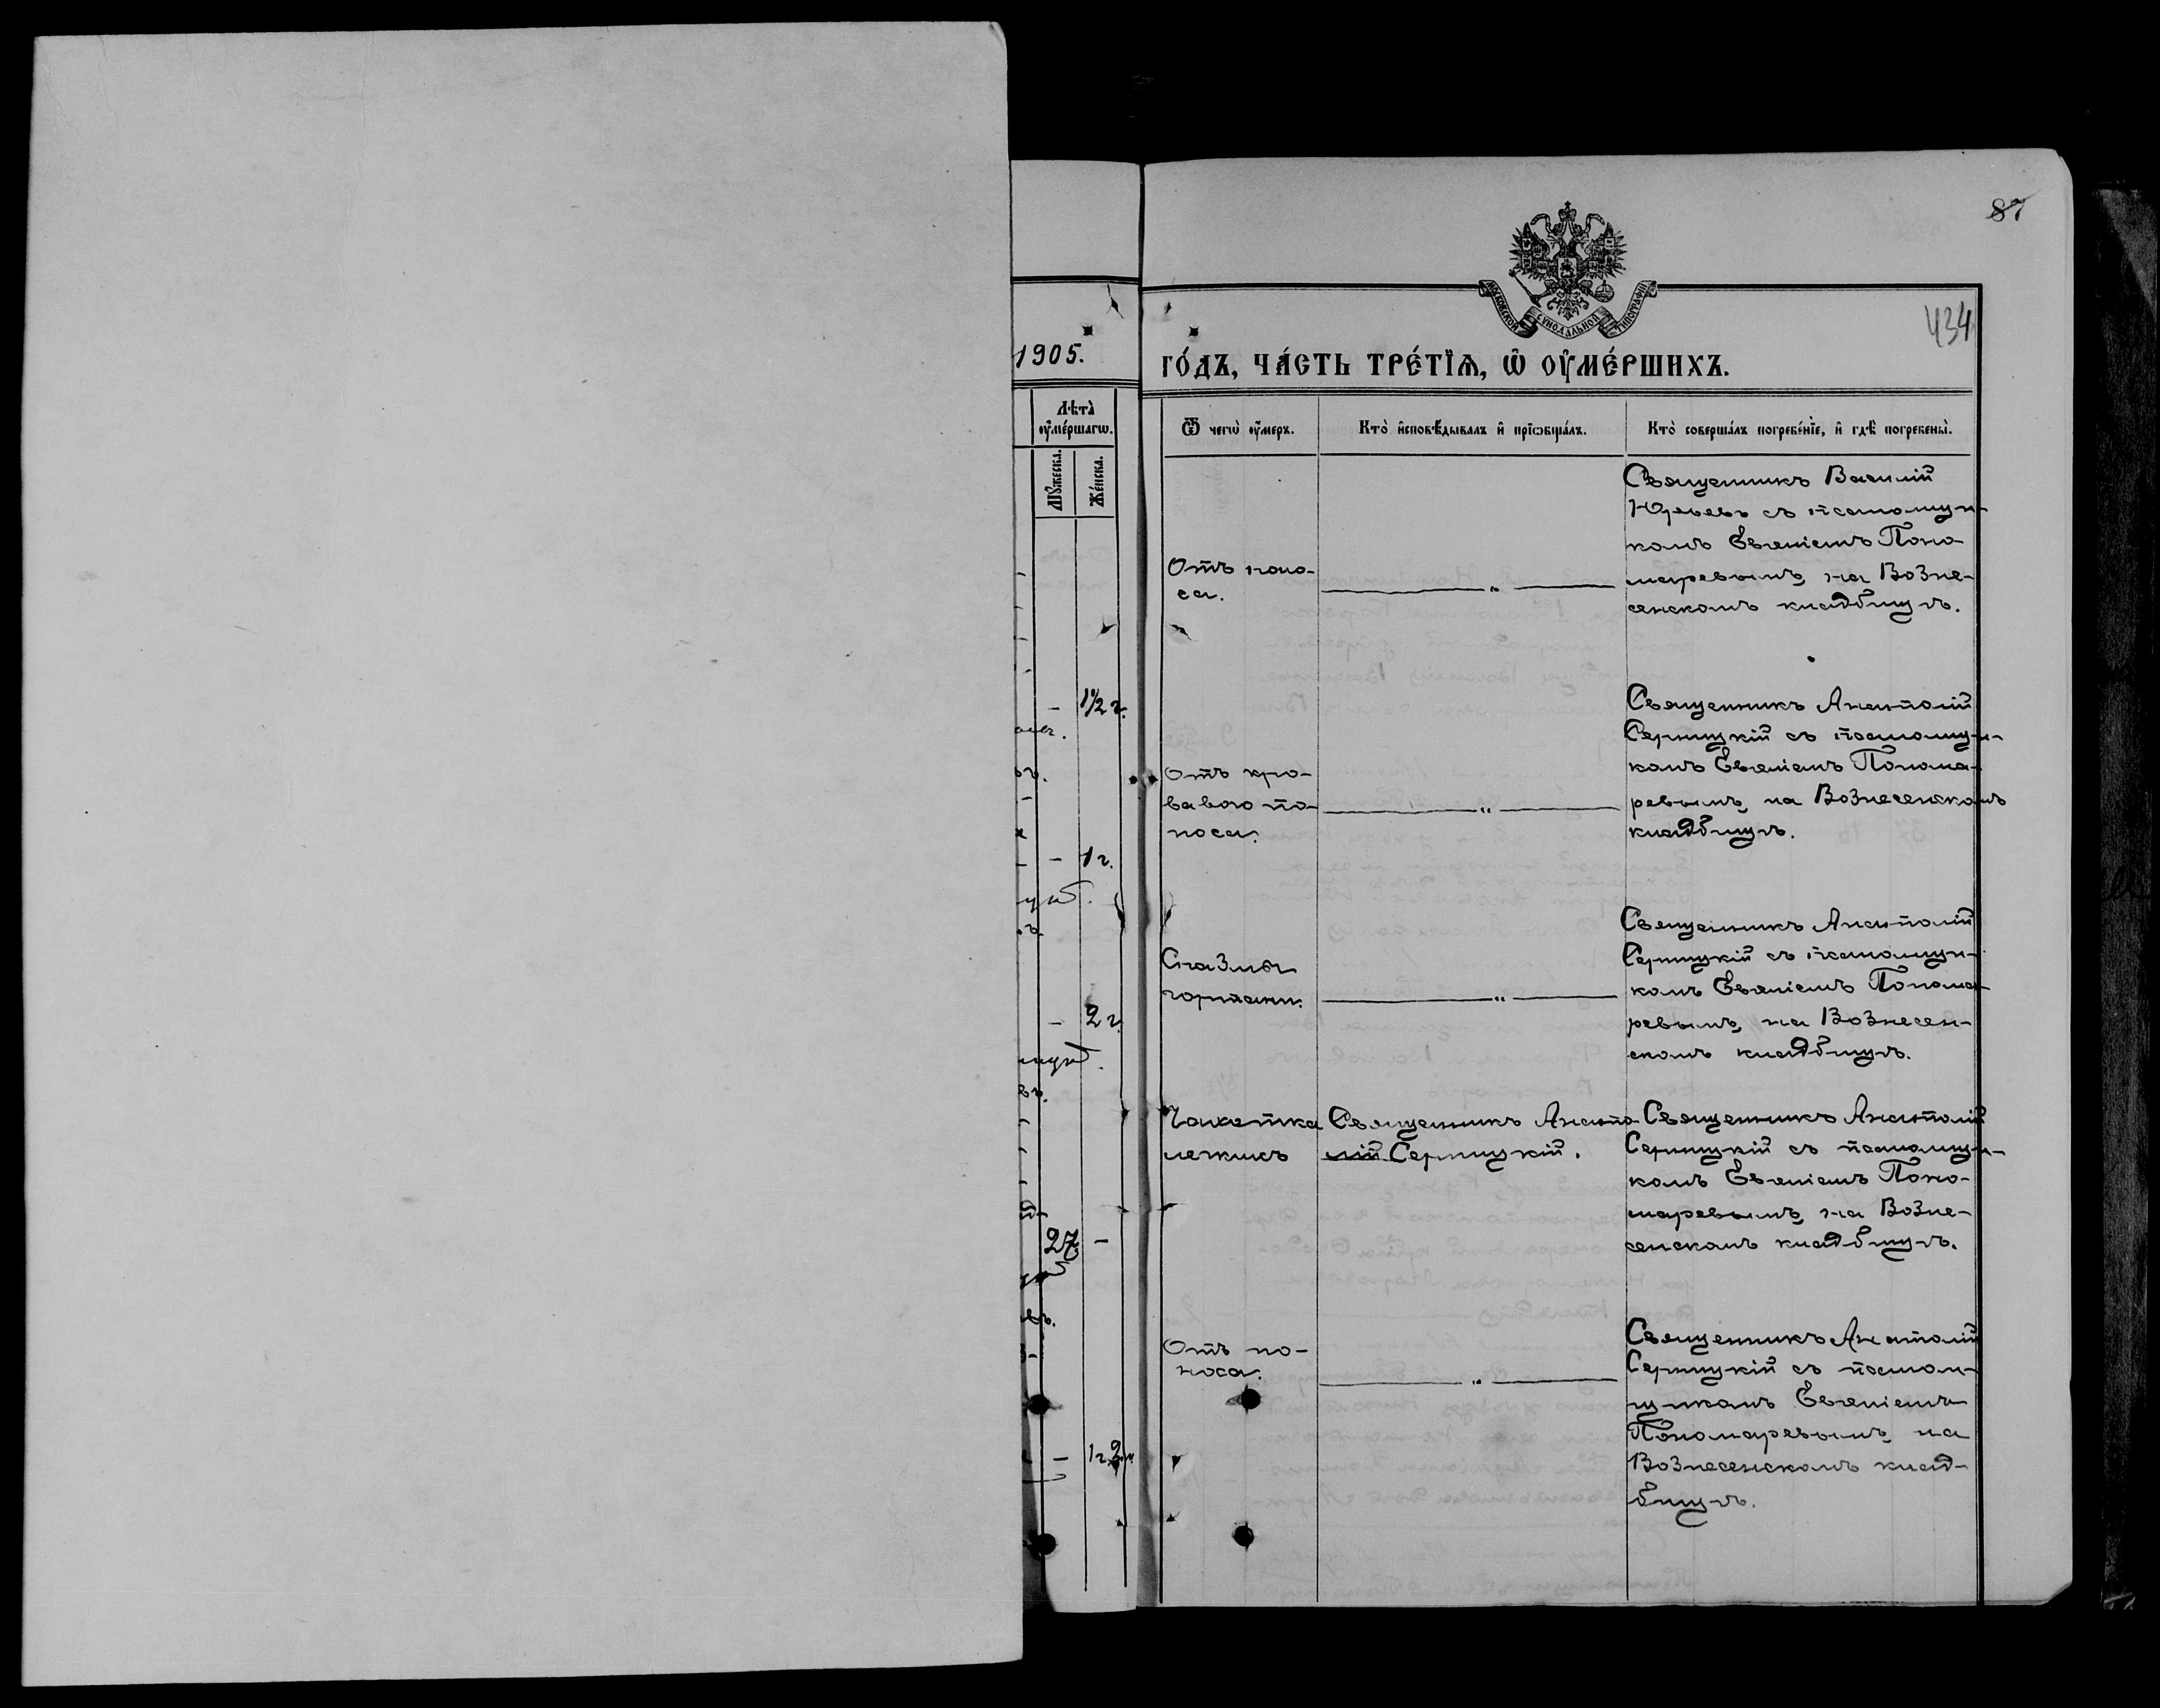 87
МОСКОВСКОЙ СѴНОДАЛЬНОЙ ТИПОГРАФІИ
434
1905.
го́дъ, ча́сть тре́тїѧ, ѡ҆ ᲂу҆ме́ршихъ.
Лѣта̀ ᲂу҆ме́ршагѡ.
Мꙋ́жеска.
Же́нска.
Ѿ чегѡ̀ ᲂу҆́меръ.
Кто̀ и҆сповѣ́дывалъ и҆ прїѡбща́лъ.
Кто̀ соверша́лъ погребе́нїе, и҆ гдѣ̀ погребены̀.
Отъ поно-
са.
— „ —
Священникъ Василій
Юрьевъ съ псаломщи-
комъ Евгеніемъ Поно-
маревымъ, на Возне-
сенскомъ кладбищѣ.
- 1½ г.
Отъ кро-
ваваго по-
носа.
— „ —
Священникъ Анатолій
Серницкій съ псаломщи-
комъ Евгеніемъ Понома-
ревымъ, на Вознесенскомъ
кладбищѣ.
- 1 г.
Спазмы
гортани.
— „ —
Священникъ Анатолій
Серницкій съ псаломщи-
комъ Евгеніемъ Понома-
ревымъ, на Вознесен-
скомъ кладбищѣ.
- 2 г.
Чахотка
легкихъ
Священникъ Анато-
лій Серницкій.
Священникъ Анатолій
Серницкій съ псаломщи-
комъ Евгеніемъ Поно-
маревымъ, на Возне-
сенскомъ кладбищѣ.
27 -
Отъ по-
носа.
— „ —
Священникъ Анатолій
Серницкій съ псалом-
щикомъ Евгеніемъ
Пономаревымъ, на
Вознесенскомъ клад-
бищѣ.
- 1 г. 2 м.